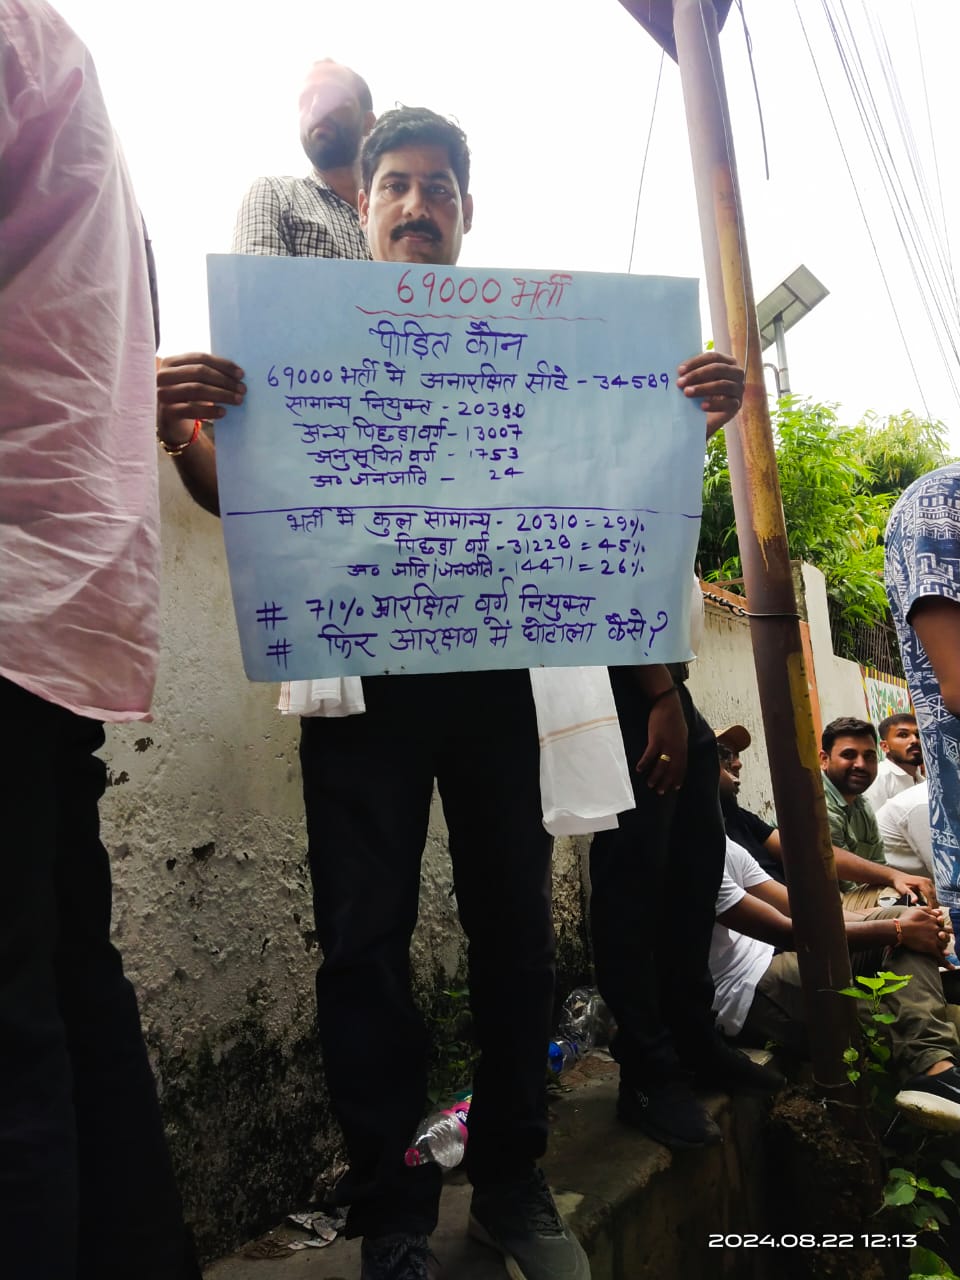 69000 भर्ती
पीड़ित कौन
69000 भर्ती में अनारक्षित सीटे - 34589
सामान्य नियुक्त -
अन्य पिछडा वर्ग - 13007
अनुसूचित वर्ग - 1753
अ० जनजाति - 24
भर्ती में कुल सामान्य - 20310 = 29%
पिछडा वर्ग - 31228 = 45%
अ० जाति/जनजाति - 14471 = 26%
# 71% आरक्षित वर्ग नियुक्त
# फिर आरक्षण में घोटाला कैसे?
2024.08.22 12:13